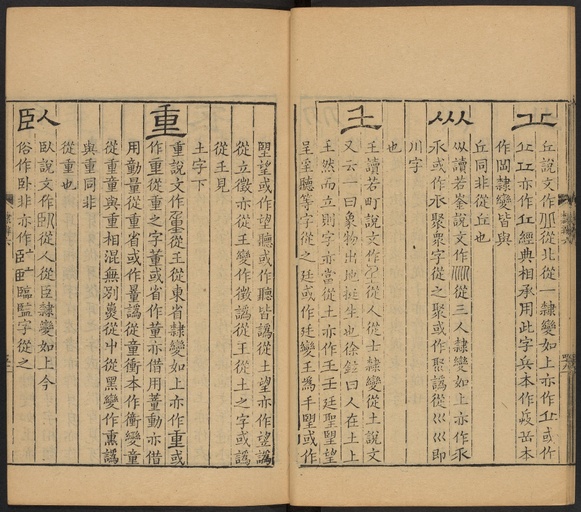 丘說文作𠀌從北從一隸變如上亦作㐀或作
亦作丘經典相承用此字兵本作岳本
作岡隸變皆與
丘同非從丘也
㐺讀若崟說文作從三人隸變如上亦作
或作聚衆字從之聚或作聚譌從巛巛即
川字
也
𡈼讀若町說文作𡈼從人從士隸變從土說文
又云一曰象物出地挺生也徐鉉曰人在土上
𡈼然而立則字亦當從土亦作王壬廷聖朢望
呈垩聽等字從之廷或作廷變王爲手朢或作
朢望或作望聽或作聽皆譌從土望亦作望譌
從立徵亦從王變作徵譌從王從土之字或譌
從王見
土字下
重
重說文作從王從東省隸變如上亦作重或
作重從重之字董或省作董亦借用董動亦借
用動量從重省或作量譌從童衝本作衝變童
從重童與重相混無別㷱從中從黑變作熏譌
與重同非
從重也
臥
臥說文作從人從臣隸變如上今
俗作卧非亦作臨監字從之